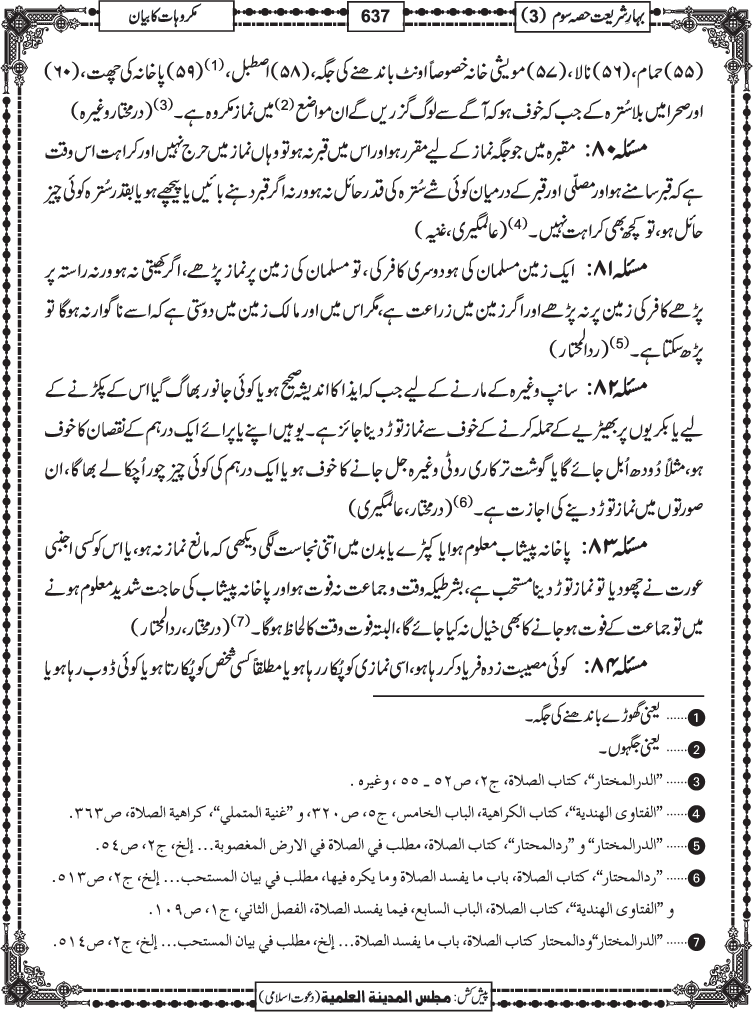 بہارِ شریعت حصہ سوم (3)
637
مکروہات کا بیان
(۵۵) حمام، (۵۶) نالا، (۵۷) مویشی خانہ خصوصاً اونٹ باندھنے کی جگہ، (۵۸) اصطبل، (1) (۵۹) پاخانہ کی چھت، (۶۰)
اور صحرا میں بلا سُترہ کے جب کہ خوف ہو کہ آگے سے لوگ گزریں گے ان مواضع (2) میں نماز مکروہ ہے۔ (3) (درمختار وغیرہ)
مسئلہ ۸۰: مقبرہ میں جو جگہ نماز کے لیے مقرر ہو اور اس میں قبر نہ ہو تو وہاں نماز میں حرج نہیں اور کراہت اس وقت
ہے کہ قبر سامنے ہو اور مصلّی اور قبر کے درمیان کوئی شے سُترہ کی قدر حائل نہ ہو ورنہ اگر قبر دہنے بائیں یا پیچھے ہو یا بقدر سُترہ کوئی چیز
حائل ہو، تو کچھ بھی کراہت نہیں۔ (4) (عالمگیری، غنیہ)
مسئلہ ۸۱: ایک زمین مسلمان کی ہو دوسری کافر کی، تو مسلمان کی زمین پر نماز پڑھے، اگر کھیتی نہ ہو ورنہ راستہ پر
پڑھے کافر کی زمین پر نہ پڑھے اور اگر زمین میں زراعت ہے، مگر اس میں اور مالک زمین میں دوستی ہے کہ اسے ناگوار نہ ہوگا تو
پڑھ سکتا ہے۔ (5) (ردالمحتار)
مسئلہ ۸۲: سانپ وغیرہ کے مارنے کے لیے جب کہ ایذا کا اندیشہ صحیح ہو یا کوئی جانور بھاگ گیا اس کے پکڑنے کے
لیے یا بکریوں پر بھیڑیے کے حملہ کرنے کے خوف سے نماز توڑ دینا جائز ہے۔ یوہیں اپنے یا پرائے ایک درہم کے نقصان کا خوف
ہو، مثلاً دُودھ اُبل جائے گا یا گوشت ترکاری روٹی وغیرہ جل جانے کا خوف ہو یا ایک درہم کی کوئی چیز چور اُچکا لے بھاگا، ان
صورتوں میں نماز توڑ دینے کی اجازت ہے۔ (6) (درمختار، عالمگیری)
مسئلہ ۸۳: پاخانہ پیشاب معلوم ہوا یا کپڑے یا بدن میں اتنی نجاست لگی دیکھی کہ مانع نماز نہ ہو، یا اس کو کسی اجنبی
عورت نے چھو دیا تو نماز توڑ دینا مستحب ہے، بشرطیکہ وقت و جماعت نہ فوت ہو اور پاخانہ پیشاب کی حاجت شدید معلوم ہونے
میں تو جماعت کے فوت ہو جانے کا بھی خیال نہ کیا جائے گا، البتہ فوت وقت کا لحاظ ہوگا۔ (7) (درمختار، ردالمحتار)
مسئلہ ۸۴: کوئی مصیبت زدہ فریاد کر رہا ہو، اسی نمازی کو پُکار رہا ہو یا مطلقاً کسی شخص کو پُکارتا ہو یا کوئی ڈوب رہا ہو یا
1 ...... یعنی گھوڑے باندھنے کی جگہ۔
2 ...... یعنی جگہوں۔
3 ...... ''الدرالمختار''، کتاب الصلاة، ج٢، ص٥٢ ـ ٥٥، وغیرہ .
4 ...... ''الفتاوی الهندیة''، کتاب الکراهیة، الباب الخامس، ج٥، ص٣٢٠، و ''غنیة المتملي''، کراهیة الصلاة، ص٣٦٣.
5 ...... ''الدرالمختار'' و ''ردالمحتار''، کتاب الصلاة، مطلب في الصلاة في الارض المغصوبة... إلخ، ج٢، ص٥٤.
6 ...... ''ردالمحتار''، کتاب الصلاة، باب ما یفسد الصلاة وما یکرہ فیها، مطلب في بیان المستحب... إلخ، ج٢، ص٥١٣.
و ''الفتاوی الهندیة''، کتاب الصلاة، الباب السابع، فیما یفسد الصلاة، الفصل الثاني، ج١، ص١٠٩.
7 ...... ''الدرالمختار''ودالمحتار کتاب الصلاة، باب ما یفسد الصلاة... إلخ، مطلب في بیان المستحب... إلخ، ج٢، ص٥١٤.
پیش کش: مجلس المدینة العلمیة (دعوت اسلامی)